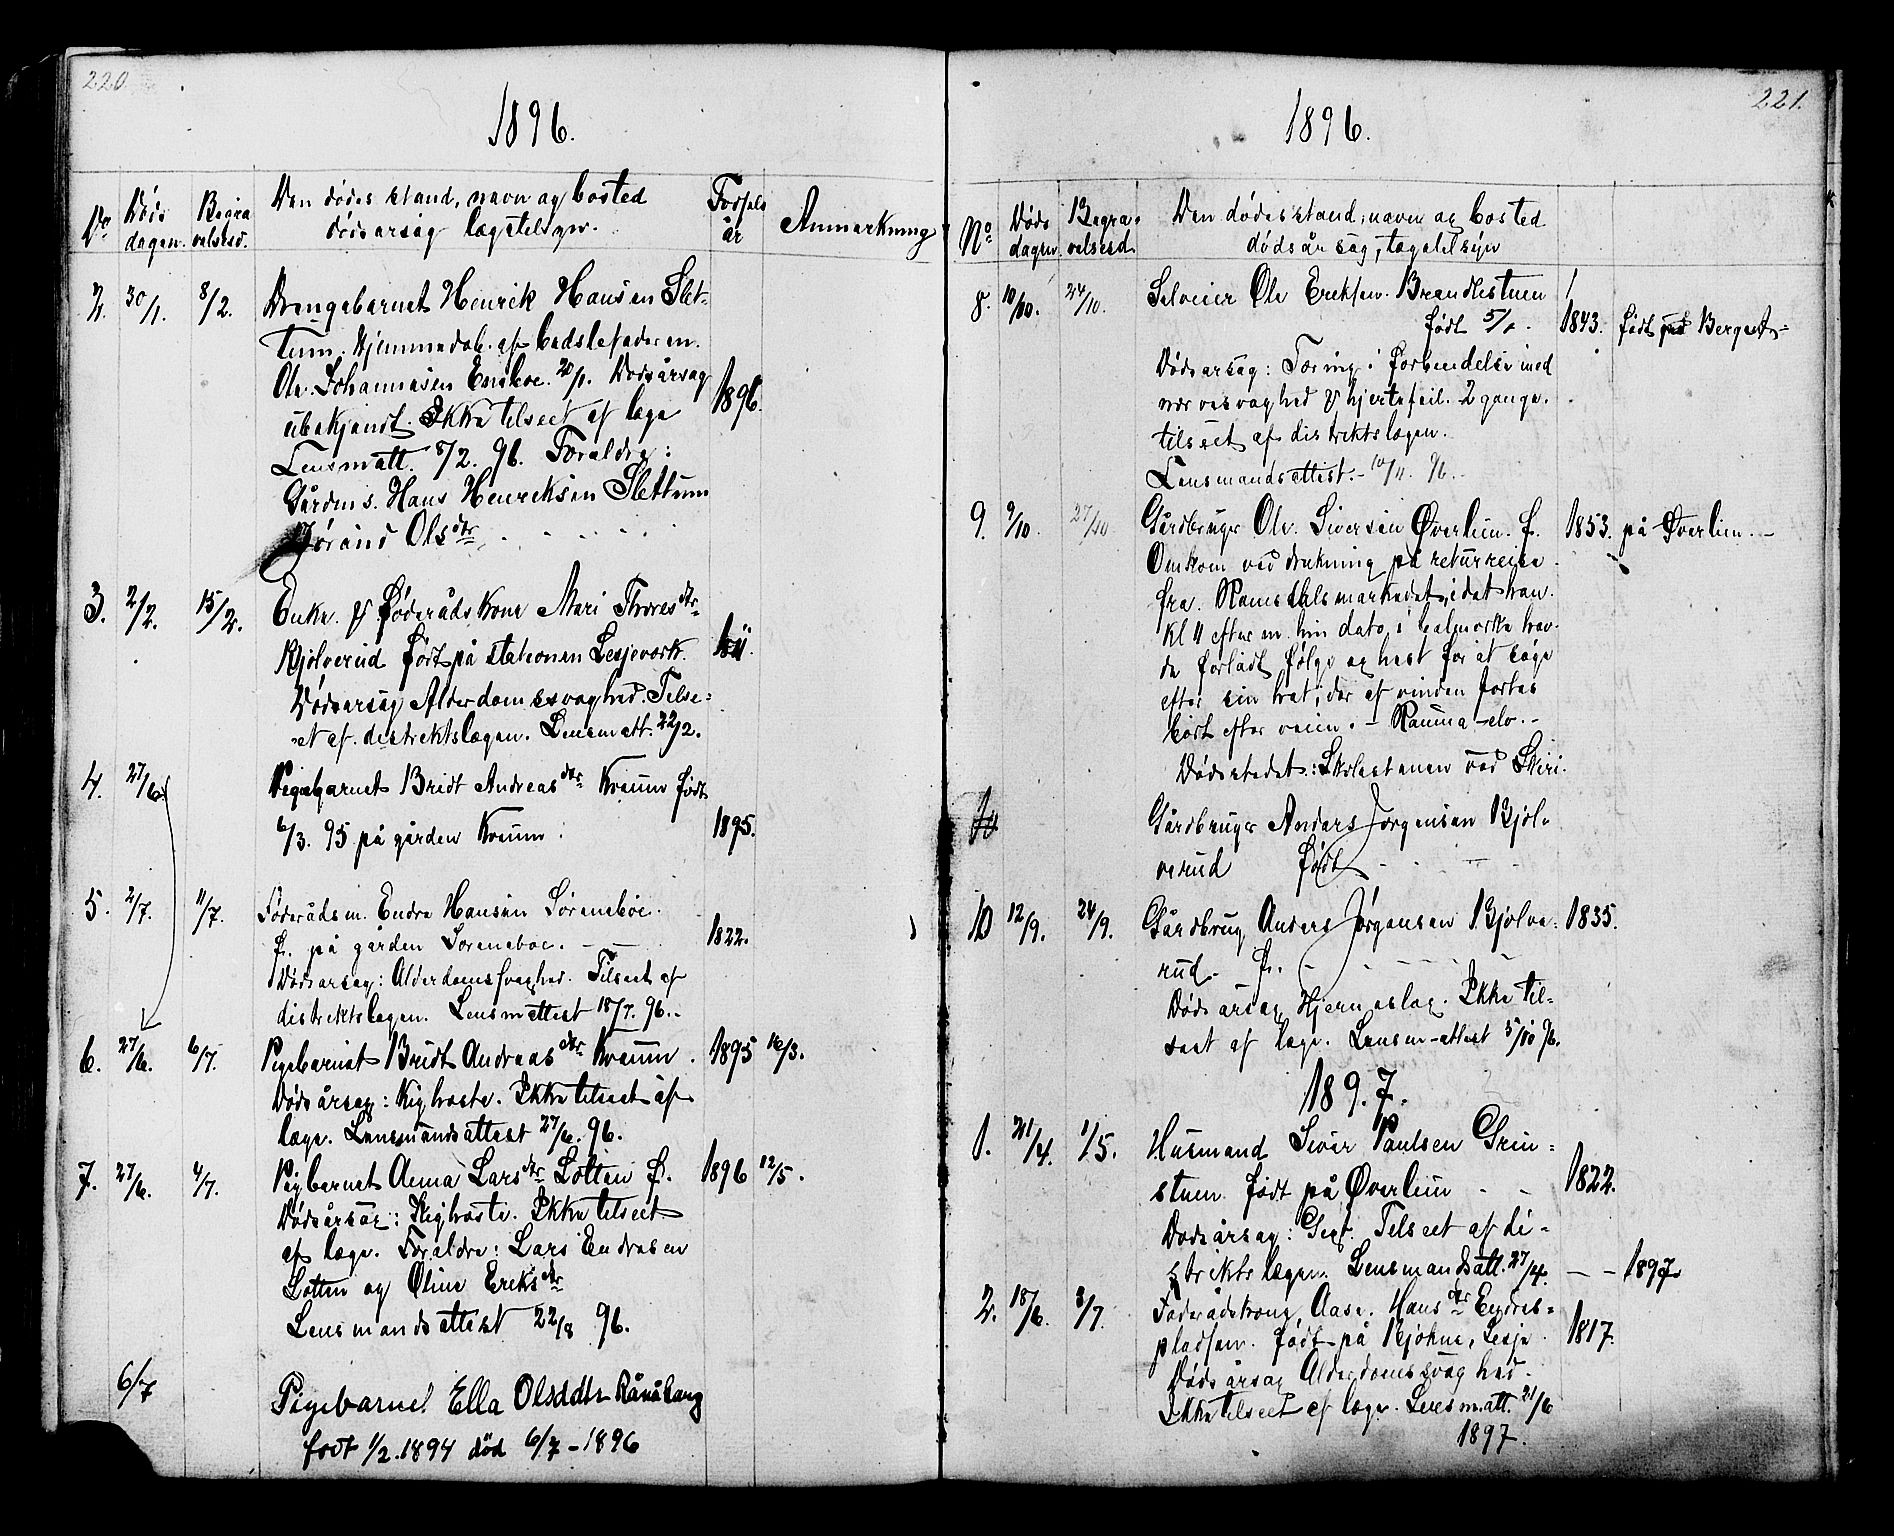 220.
1896.
No
Døds
dagen.
Begra
velsesd.
Den dødes stand, navn og bosted
dødsårsag lægetilsyn.
Fødsels
år
Anmærkning
2.
30/1.
8/2.
Drengebarnet Henrik Hansen Slet-
tum. Hjemmedøb. af bedstefaderen.
Ole Johannesen Ensboe. 20/1. Dødsårsag
ubekjendt. Ikke tilseet af læge
1896.
Lensmatt. 8/2. 96. Forældre:
Gårdms. Hans Henriksen Slettum
Jørand Olsdtr
3.
2/2.
15/2.
Enke & Føderådskone Mari Thoresdtr
Kjølverud Født på stationen Lesjeverk.
1811.
Dødsårsag Alderdomssvaghed. Tilse-
et af distriktslægen. Lensmatt. 22/2.
4.
27/6.
Pigebarnet Bridt Andreasdtr Kvaum født
6/3. 95 på gården Kvaum.
1895.
5.
2/7.
11/7.
Føderådsm. Endre Hansen Sørensbøe.
f. på gården Sørensboe.
1822.
Dødsårsag: Alderdomssvaghed. Tilseet af
distriktslægen. Lensmattest 18/7. 96.
6.
27/6.
6/7.
Pigebarnet Bridt Andreasdtr Kvaum.
1895
16/3.
Dødsårsag: Kighoste. Ikke tilseet af
læge. Lensmandsattest 27/6. 96.
7.
27/6.
4/7.
Pigbarnet Anna Larsdtr Løtten f.
1896
12/5.
Dødsårsag: Kighoste. Ikke tilseet
af læge. Forældre: Lars Endresen
Løtten og Oline Eriksdtr
Lensmandsattest 22/8 96.
6/7
Pigebarnet Ella Olsddtr Rånåkang
født 1/2.1894 død 6/7-1896
221.
1896.
No
Døds
dagen
Begra-
velsesd.
Den dødes stand, navn og bosted
dødsårsag, lægetilsyn
8.
10/10.
24/10.
Selveier Ole Eriksen. Brandlistuen
født 5/1.
1843.
født på Bergseter
Dødsårsag: Tæring i forbindelse med
nervesvaghed & hjertefeil. 2 gange.
tilseet af distriktslægen.
Lensmandsattest. 10/11. 96.
9.
9/10.
27/10
Gårdbruger Ole Siversen Øverlien. f.
1853.
på Øverlien.
Omkom ved drukning på returreise
fra Romsdalsmarkedet, idet han.
Kl 11 efterm. hin dato, i bælmørke hav-
de forladt følge og hest for at søge
efter sin hat, der af vinden førtes
bort efter veien. - Rauma-elv. -
Dødsstedet: Skolestuen ved Skiri.
10
Gårdbruger Anders Jørgensen Kjøl-
verud Født
10
12/9.
24/9.
Gårdbrug Anders Jørgensen Kjølve-
1835.
rud. f.
Dødsårsag Hjerneslag. Ikke til-
seet af læge. Lensm-attest 5/10 96.
1897.
1.
21/4.
1/5.
Husmand Siver Paulsen Grin-
stuen. født på Øverlien
1822.
Dødsårsag: Gigt. Tilseet af di-
striktslægen. Lensmandsatt. 27/4.
1897
2.
18/6.
3/7.
Føderådskone, Aase. Hansdtr Endres-
pladsen. født på Kjøhne, Lesje.
1817.
Dødsårsag Alderdomssvaghed.
Ikke tilseet af læge. Lensmatt. 21/6
1897.